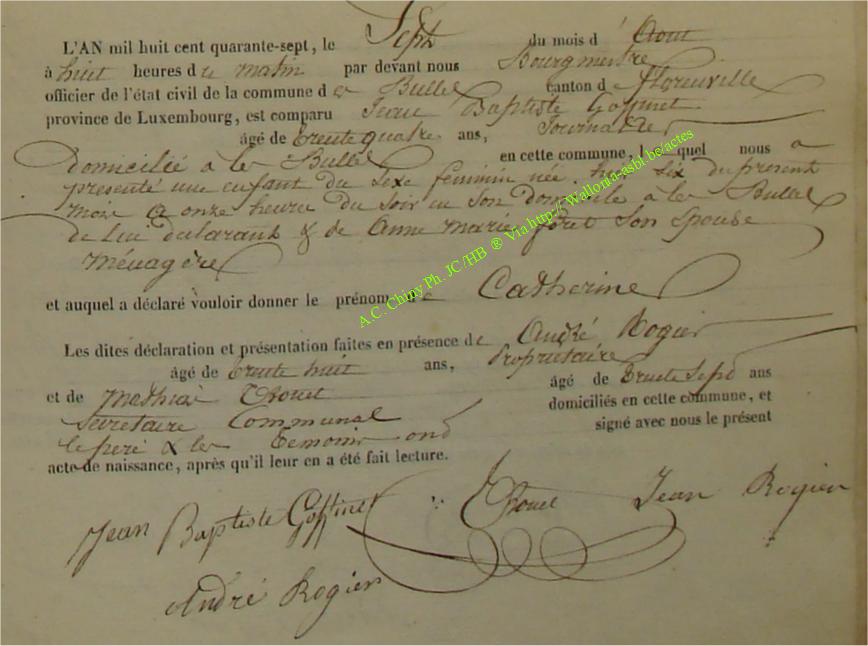 L'AN mil huit cent quarante-sept, le Sept du mois d' Aout
à huit heures du matin par devant nous Bourgmestre
officier de l'état civil de la commune de Bulles canton de Florenville
province de Luxembourg, est comparu Jean Baptiste Goffinet
âgé de trente quatre ans, Journalier
domicilié à les Bulles en cette commune, lequel nous a
présenté une enfant du sexe féminin née Au six du présent
mois a onze heure du Soir en Son domicile à les Bulles
de lui déclarant & de Anne Marie Son Epouse
Ménagère
et auquel a déclaré vouloir donner le prénom de Catherine
Les dites déclaration et présentation faites en présence de André Rogier
âgé de trente huit ans, Propriétaire
et de Mathieu Thouet âgé de trente Sept ans
Secretaire Communal domiciliés en cette commune, et
le peré & les temoins ond signé avec nous le présent
acte de naissance, après qu'il leur en a été fait lecture.
Jean Baptiste Goffinet Thouet Jean Rogier
André Rogier
A.C. Chiny Ph. JC/HB ® Via http:// Wallonia-asbl.be/actes